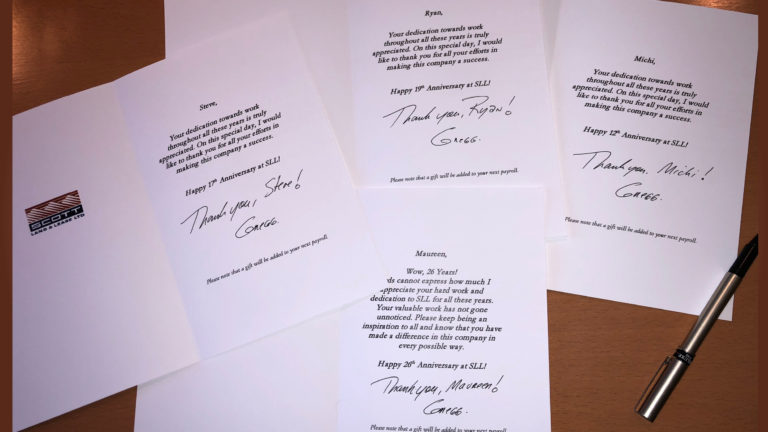 SCOTT
LAND & LEASE LTD
Steve,
Your dedication towards work
throughout all these years is truly
appreciated. On this special day, I would
like to thank you for all your efforts in
making this company a success.
Happy 17th Anniversary at SLL!
Thank you, Steve!
Gregg.
Please note that a gift will be added to your next payroll.
Ryan,
Your dedication towards work
throughout all these years is truly
appreciated. On this special day, I would
like to thank you for all your efforts in
making this company a success.
Happy 19th Anniversary at SLL!
Thank you, Ryan!
Gregg.
Please note that a gift will be added to your next payroll.
Michi,
Your dedication towards work
throughout all these years is truly
appreciated. On this special day, I would
like to thank you for all your efforts in
making this company a success.
Happy 12th Anniversary at SLL!
Thank you. Michi!
Gregg.
Please note that a gift will be added to your next payroll.
Maureen,
Wow, 26 Years!
cannot express how much I
appreciate your hard work and
dedication to SLL for all these years.
Your valuable work has not gone
unnoticed. Please keep being an
inspiration to all and know that you have
made a difference in this company in
every possible way.
Happy 26th Anniversary at SLL!
Thank you, Maureen!
Gregg.
Please note that a gift will be added to your next payroll.